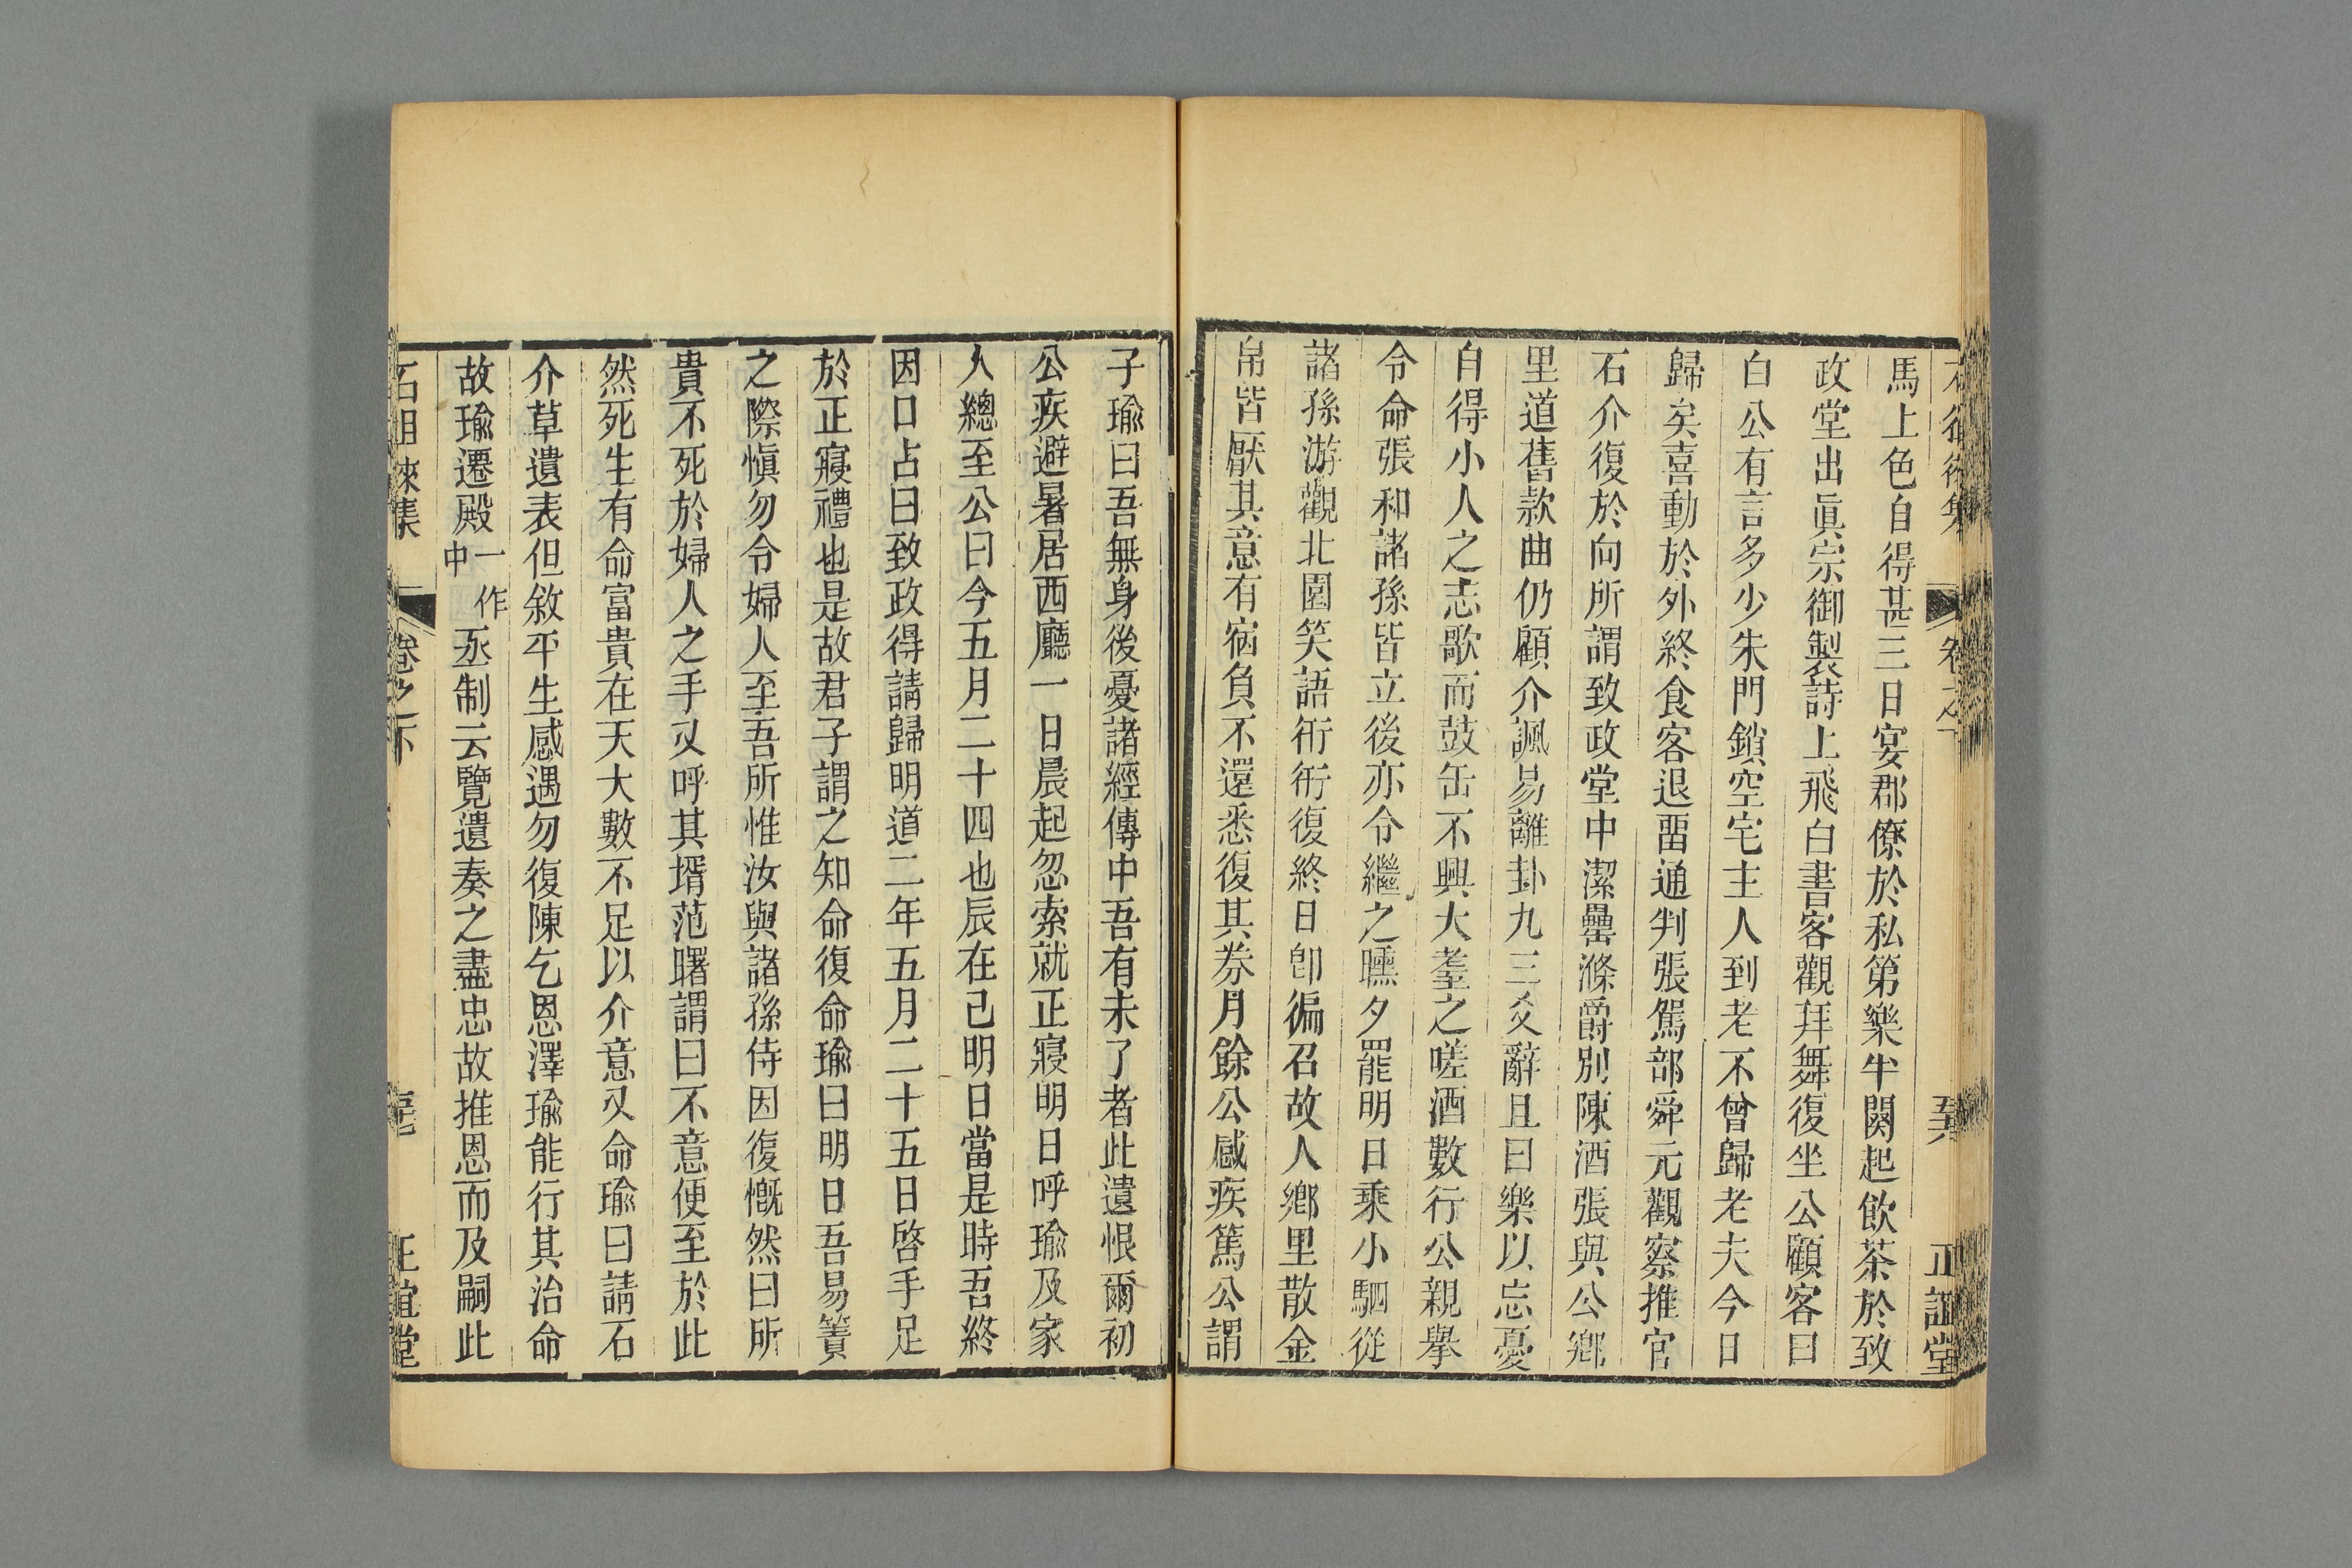 馬上色自得甚三日宴郡僚於私第樂半闋起飲茶於致
政堂出眞宗御製詩上飛白書客觀拜舞復坐公顧客曰
白公有言多少朱門鎖空宅主人到老不曾歸老夫今日
歸矣喜動於外終食客退畱通判張駕部舜元觀察推官
石介復於向所謂致政堂中潔罍滌爵別陳酒張與公鄉
里道舊款曲仍顧介諷易離卦九三爻辭且曰樂以忘憂
自得小人之志歌而鼓缶不興大耋之嗟酒數行公親舉
令命張和諸孫皆立後亦令繼之曛夕罷明日乘小駟從
諸孫游觀北園笑語衎衎復終日卽徧召故人鄉里散金
帛皆厭其意有宿負不還悉復其券月餘公感疾篤公謂
子瑜曰吾無身後憂諸經傳中吾有未了者此遺恨爾初
公疾避暑居西廳一日晨起忽索就正寢明日呼瑜及家
人總至公曰今五月二十四也辰在己明日當是時吾終
因口占曰致政得請歸明道二年五月二十五日啓手足
於正寢禮也是故君子謂之知命復命瑜曰明日吾易簀
之際愼勿令婦人至吾所惟汝與諸孫侍因復慨然曰所
貴不死於婦人之手又呼其壻范曙謂曰不意便至於此
然死生有命富貴在天大數不足以介意又命瑜曰請石
介草遺表但敘平生感遇勿復陳乞恩澤瑜能行其治命
故瑜遷殿一作中丞制云覽遺奏之盡忠故推恩而及嗣此
石徂徠集 卷之下 正誼堂